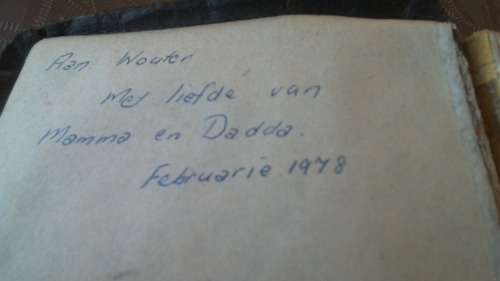 Aan Wouter
Met liefde van
Mamma en Dadda.
Februarie 1978